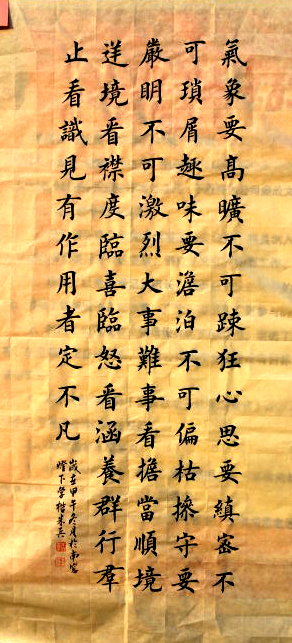 氣象要高曠不可踈狂心思要縝密不
可瑣屑趣味要澹泊不可偏枯操守要
嚴明不可激烈大事難事看擔當順境
逆境看襟度臨喜臨怒看涵養群行羣
止看識見有作用者定不凡
歲在甲午冬月於南窗
燈下學楷